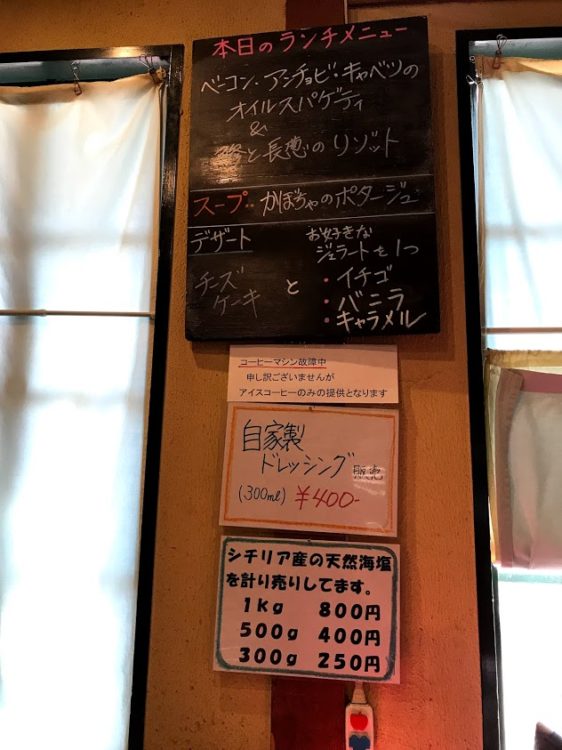 本日のランチメニュー
ベーコン・アンチョビ・キャベツの
オイルスパゲティ
&
と長葱のリゾット
スープ‥かぼちゃのポタージュ
デザート
チーズ
ケーキ
と
お好きな
ジェラートを1つ
・イチゴ
・バニラ
・キャラメル
コーヒーマシン故障中
申し訳ございませんが
アイスコーヒーのみの提供となります
自家製
ドレッシング 販売
(300ml) ¥400-
シチリア産の天然海塩
を計り売りしてます。
1kg 800円
500g 400円
300g 250円